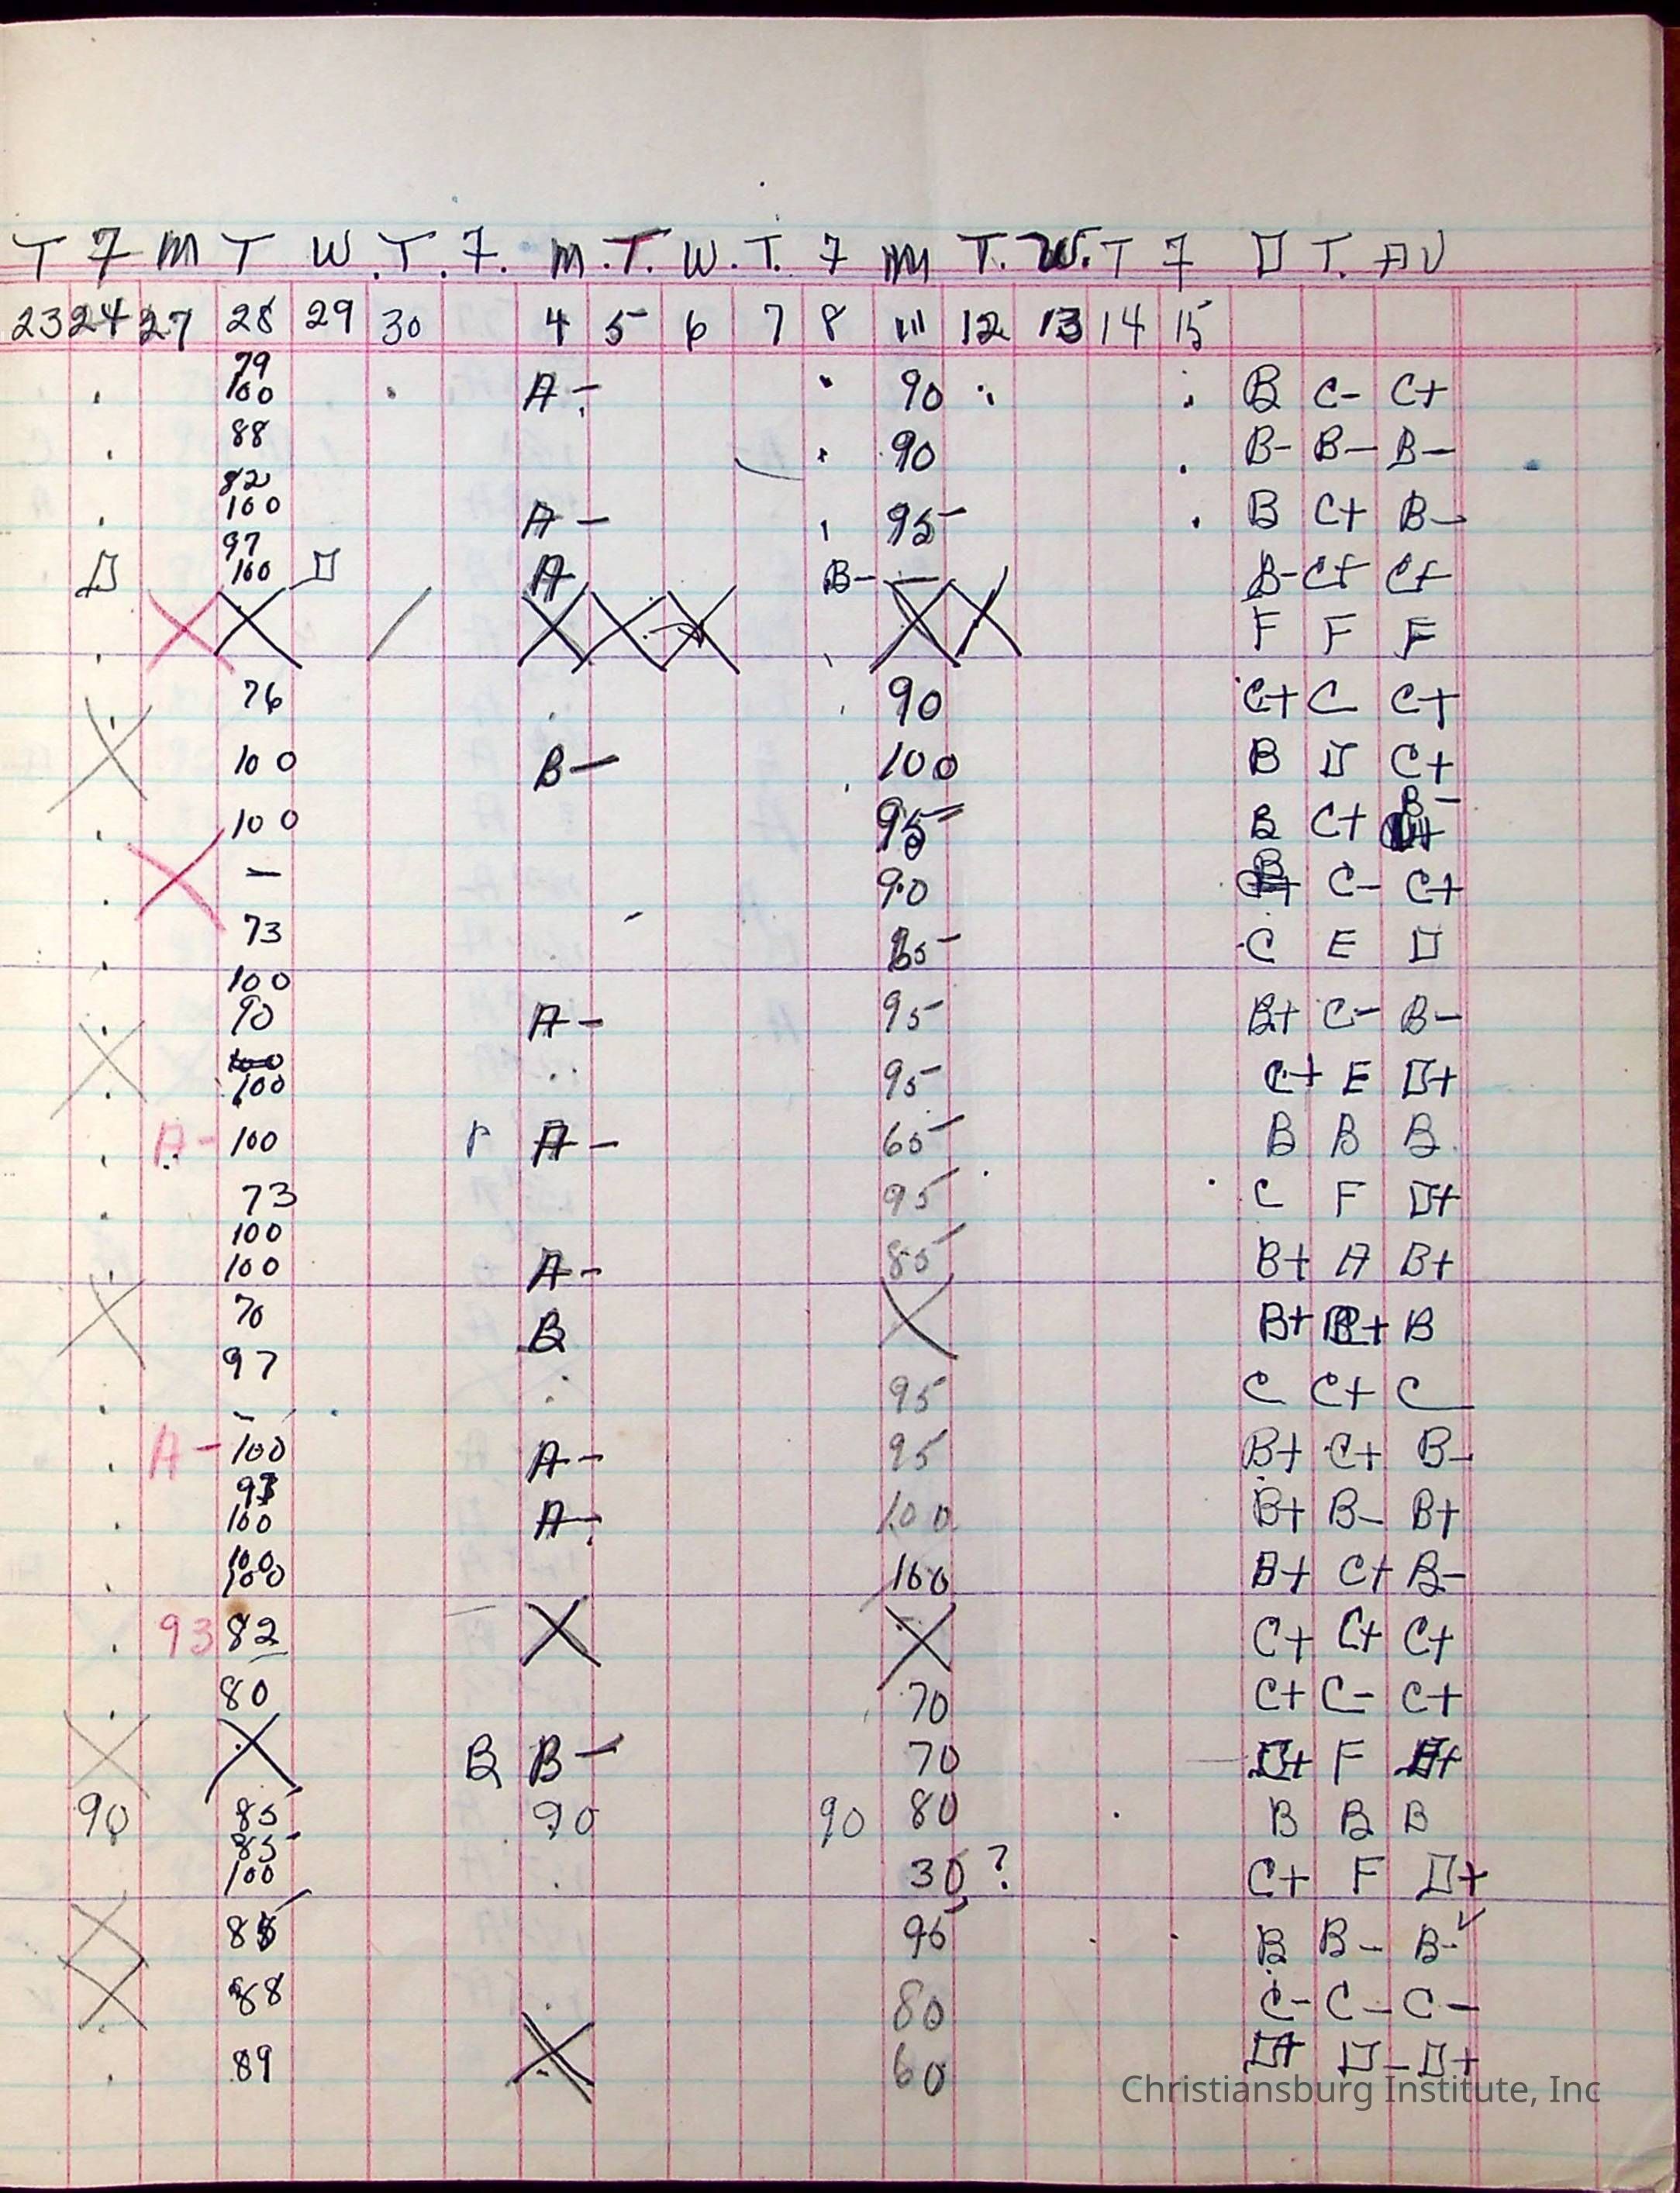 T F M T W. T. F. M. T. W. T. F M T. W. T F D T. AV
23 24 27 28 29 30 4 5 6 7 8 11 12 13 14 15
79
100 A- 90 B C- C+
88 90 B- B- B-
82
100 A- 95 B C+ B-
97
D 100 D A B- — B- C+ C+
X X / X X X X X F F F
76 90 C+ C C+
X 100 B- 100 B D C+
100 95 B C+ B-
X — 90 B C- C+
73 85 C E D
100
90 A- 95 B+ C- B-
X 100
100 95 C+ E D+
A- 100 A- 65 B B B
73 95 C F D+
100
100 A- 85 B+ A B+
X 70 B X B+ C+ B
97
- 95 C C+ C
A- 100 A- 95 B+ C+ B-
93
100 A- 100 B+ B- B+
100
100 100 B+ C+ B-
93 82 X X C+ C+ C+
80 70 C+ C- C+
X X B B- 70 D+ F
90 85 90 90 80 B B B
85
100 30? C+ F D+
X 85 95 B B- B-
X 88 80 C- C- C-
89 X 60 D+ D- D+
Christiansburg Institute, Inc